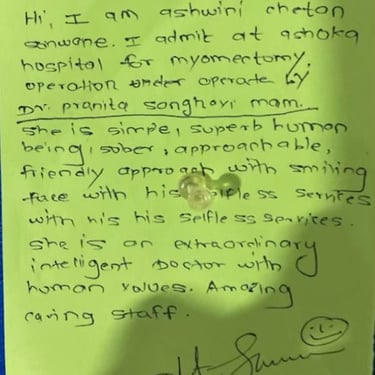 Hi, I am ashwini chetan
sonwane. I admit at ashoka
hospital for myomectomy,
operation under operate by
Dr. pranita songhavi mam.
she is simpe, superb human
being, sober, approachable,
friendly approach with smiling
face with his selfless services
with his his selfless services.
she is an extraordinary
intelligent Doctor with
human values. Amazing
caring staff.